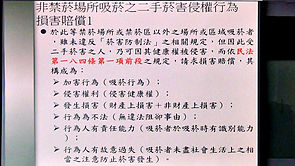 非禁菸場所吸菸之二手菸害侵權行為
損害賠償1
● 於此等禁菸場所或禁菸區以外之場所或區域吸菸者
，雖未違反「菸害防制法」之相關規定，但因此受
二手菸害之人，乃可因其健康權被侵害，而依民法
第一八四條第一項前段之規定，請求損害賠償，其
構成為：
➢ 加害行為（吸菸行為）；
➢ 侵害權利（侵害健康權）
➢ 發生損害（財產上損害＋非財產上損害）；
➢ 行為為不法（無違法阻卻事由）
➢ 行為人有責任能力（吸菸者於吸菸時有識別能力
）；
➢ 行為人有故意過失（吸菸者未盡社會生活上之相
當之注意防止菸害發生）。